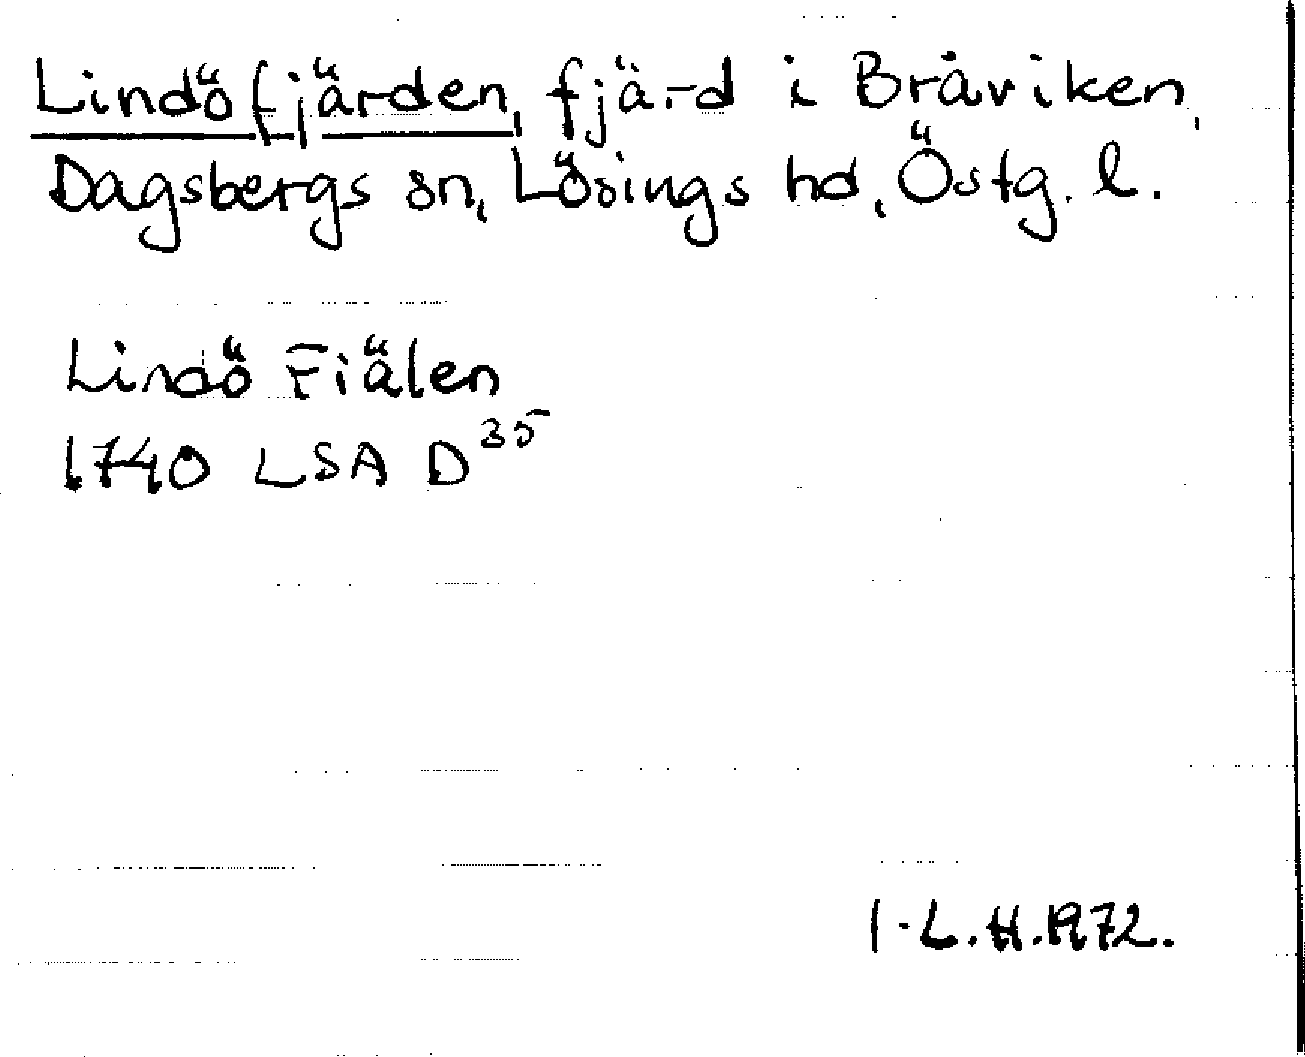 Lindöfjärden, fjärd i Bråviken,
Dagsbergs sn, Lösings hd, Östg. l.
Lindö Fiälen
1740 LSA D³⁵
I-L.H.1972.